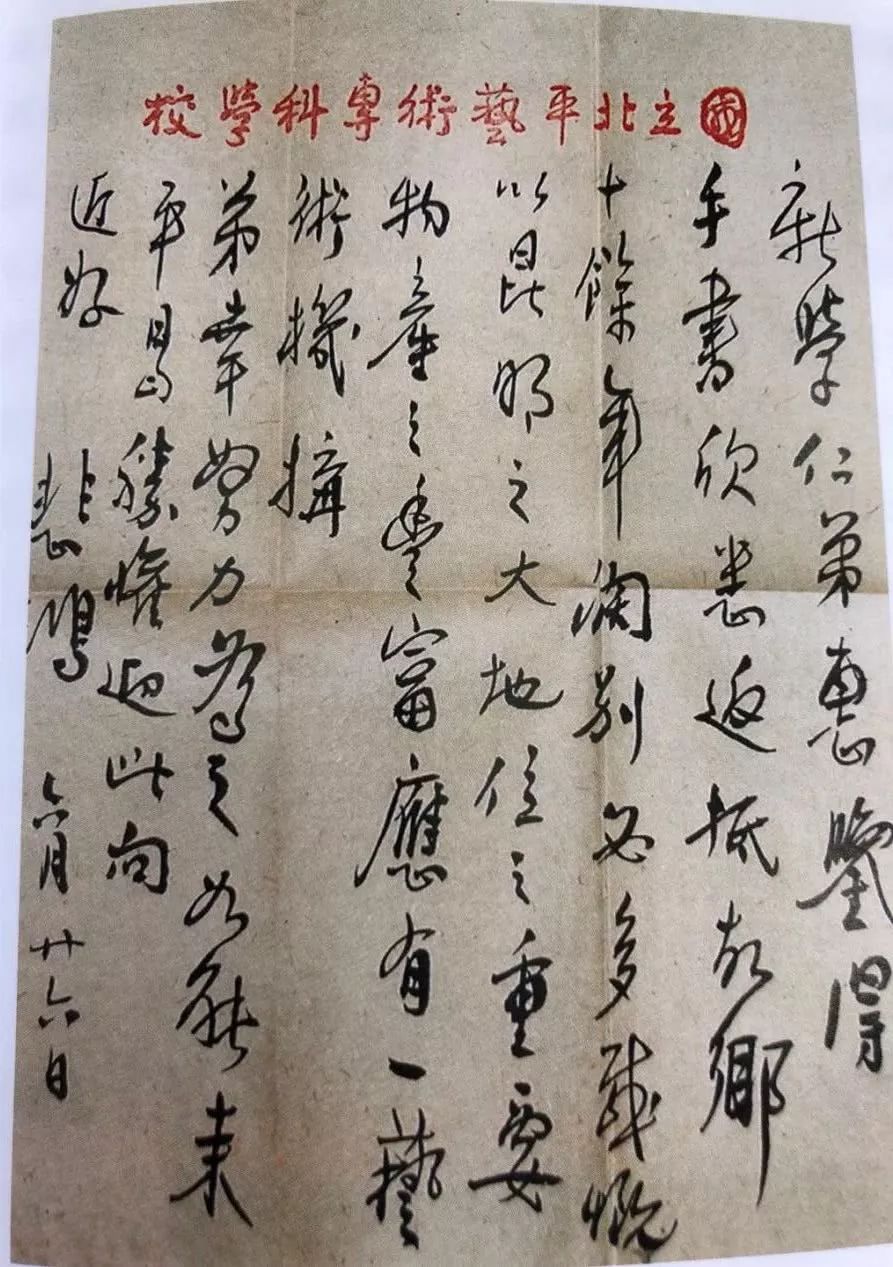 國立北平藝術專科學校
新學仁弟惠鑒得
手書欣悉返抵故鄉
十餘年闊別必多感慨
以昆明之大地位之重要
物產之豐富應有一藝
術機構
弟幸努力為之如能來
平曷勝懽迎此問
近好
悲鴻 六月廿六日